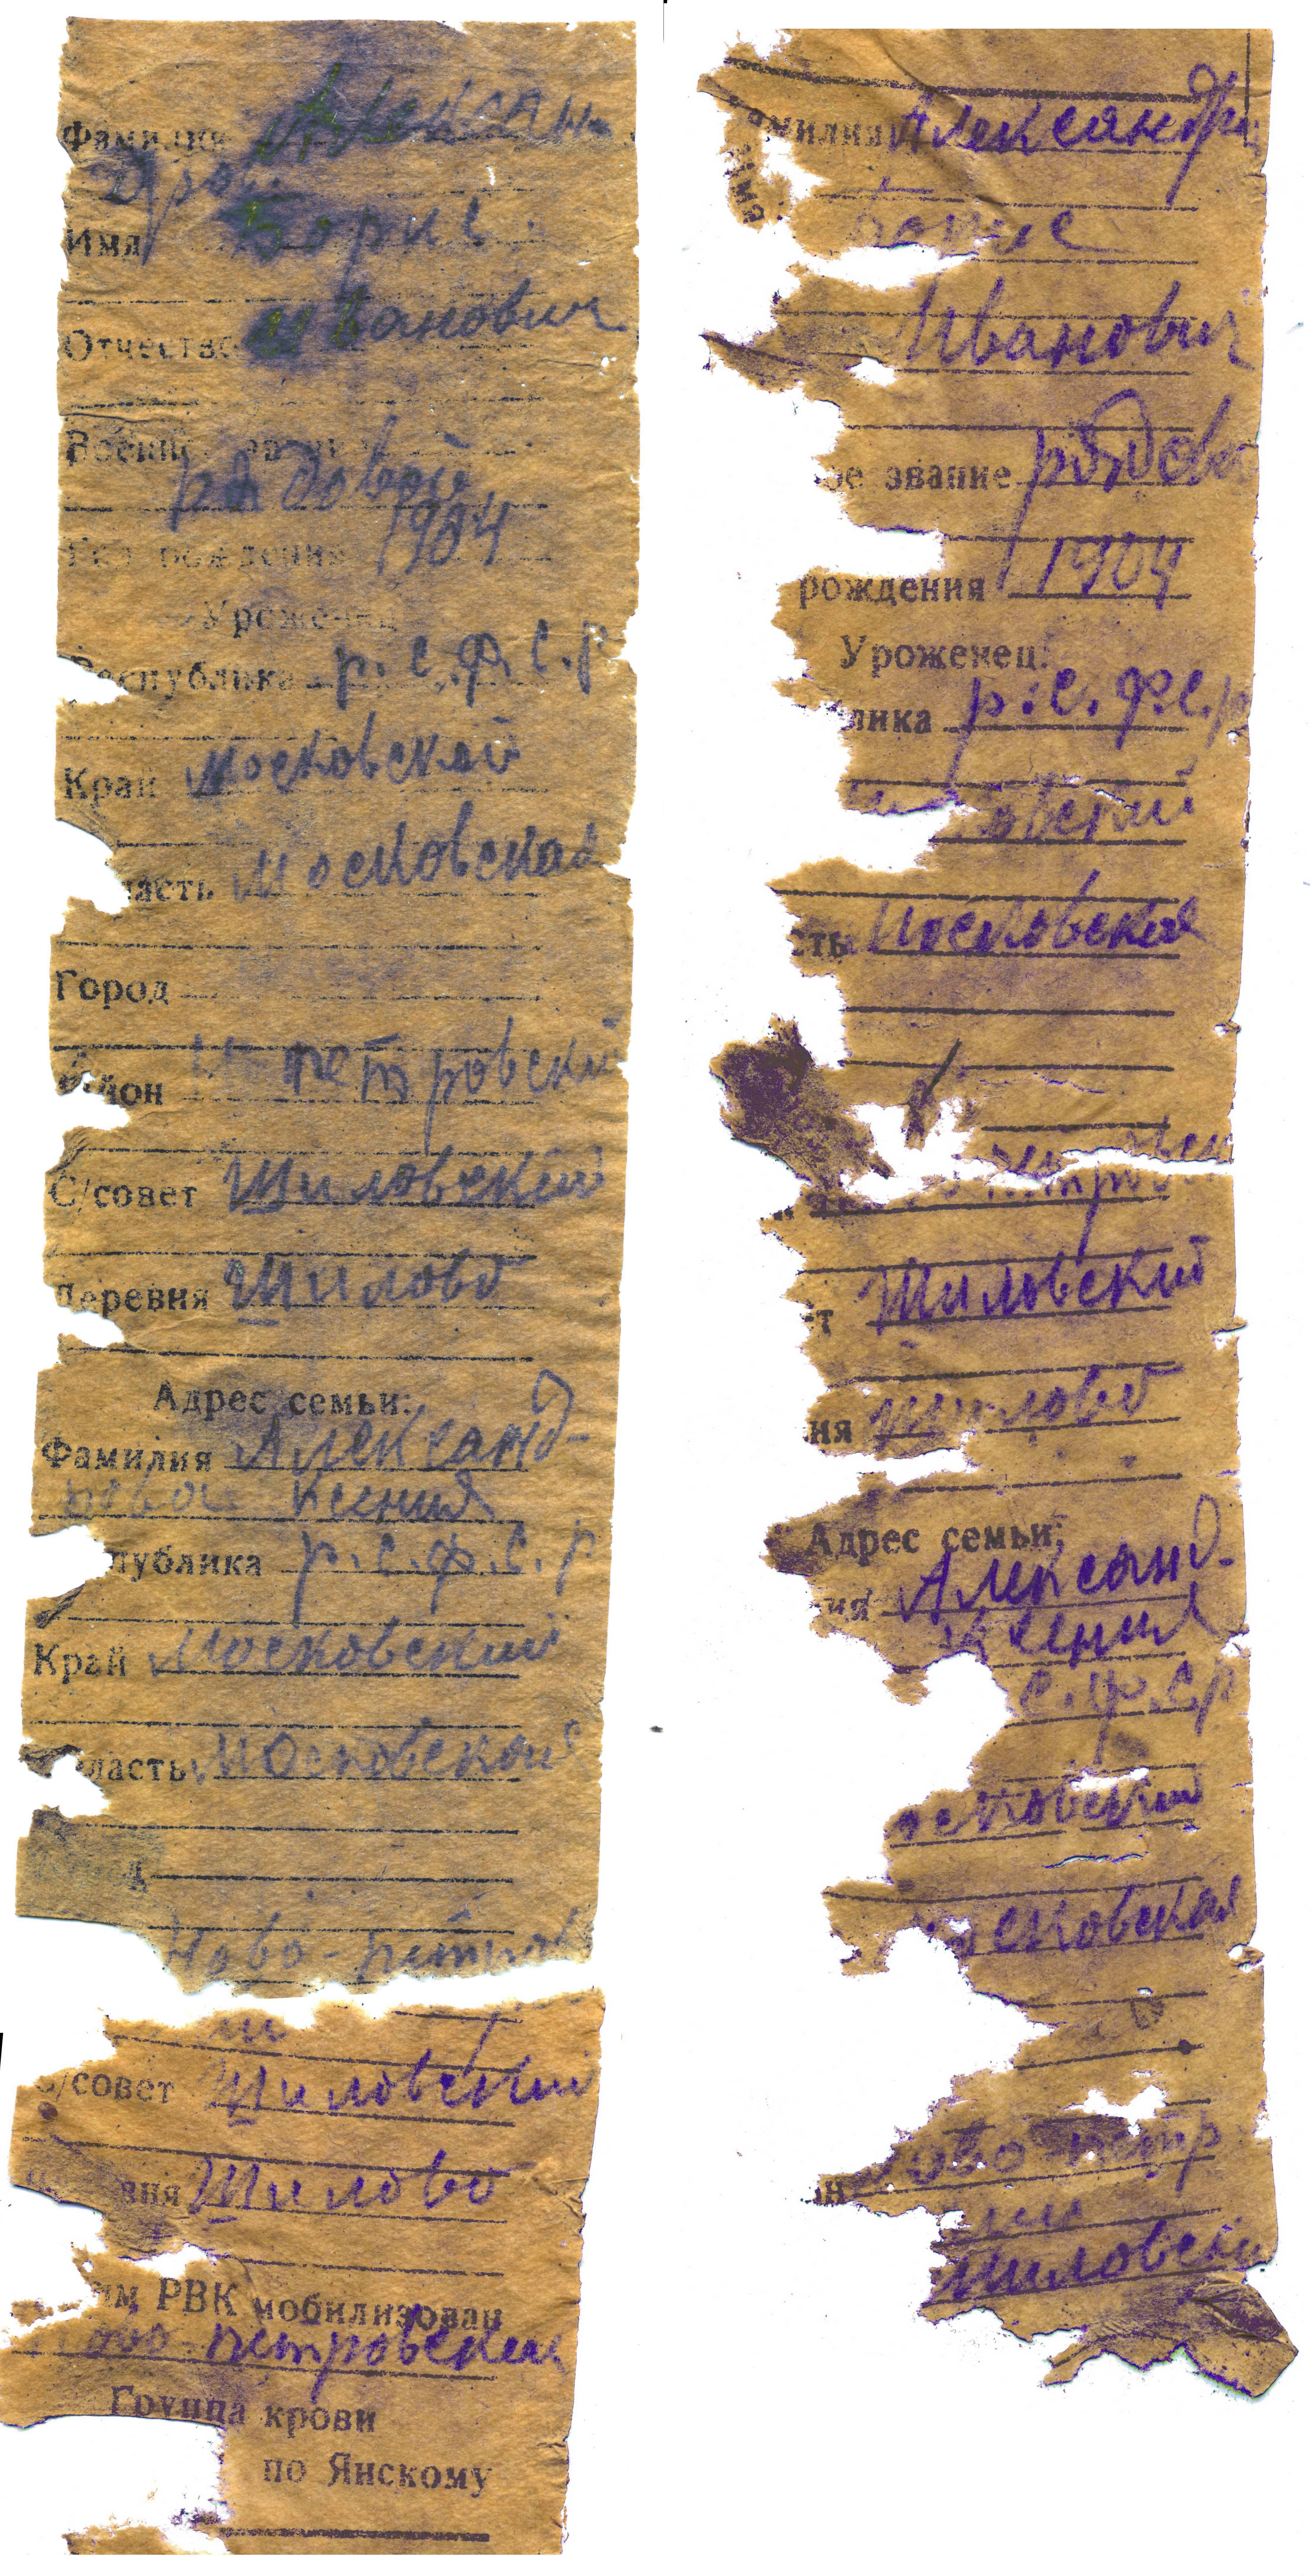 Фамилия Алексан-
дров
Имя Борис
Отчество Иванович
Военное звание
рядовой
Год рождения 1904
Уроженец
Республика р.с.ф.с.р
Край Московский
ласть Московская
Город
Район Н петровский
С/совет Шиловский
Деревня Шилово
Адрес семьи:
Фамилия Александ-
рова Ксения
публика р.с.ф.с.р
Край Московский
ласть Московская
Ново-петров
С/совет Шиловский
вня Шилово
им РВК мобилизован
ово-петровским
Группа крови
по Янскому
амилия Александр
Борис
Иванович
ое звание рядов
рождения 1904
Уроженец:
лика р.с.ф.с.р
овский
сть Московская
т Шиловский
ия Шилово
Адрес семьи:
ия Александ-
Ксения
с.ф.с.р
осковский
осковская
н ово петр
Шиловски